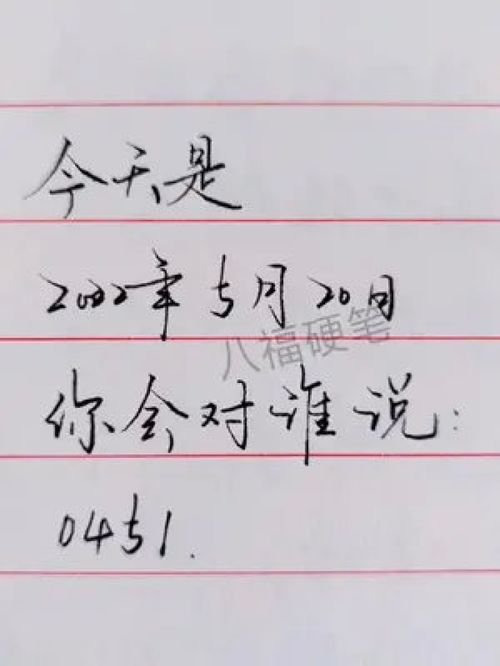 今天是
2022年5月20日
八福硬笔
你会对谁说:
0451.